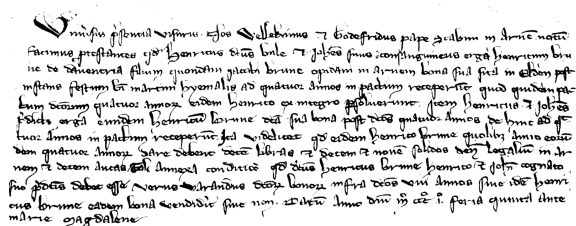 Universis presencia visuris. Nos Wellekinus et Godefridus pape scabini in arnem notum
facimus protestantes quod henricus dictus bule et Johannes suus consanguineus erga henricum bru
ne de daventria filium quondam iacobi brune opidani in arnem bona sua sita in Elden post
instans festum beati martini hyemalis ad quatuor annos in pactum receperunt quod quidem pac
tum dictorum quatuor annorum eidem henrico ex integro persolverunt. Item henricus et Johannes
predicti erga eundem henricum brune dicta sua bona post dictos quatuor annos de hinc ad qua
tuor annos in pactum receperunt Ita videlicet quod eidem henrico brune quolibet anno eorun
dem quatuor annorum dare debent decem libras et decem et novem solidos den legalium in ar
nem et decem aucas tali annexa conditione quod dictus henricus brune henrico et Johanni cognato
suo predictis debet esse verus warandus dictorum bonorum infra dictos viii annos sive idem henri
cus brune eadem bona vendidit sive non. Datum anno domini m ccc i. feria quinta ante
marie magdalene